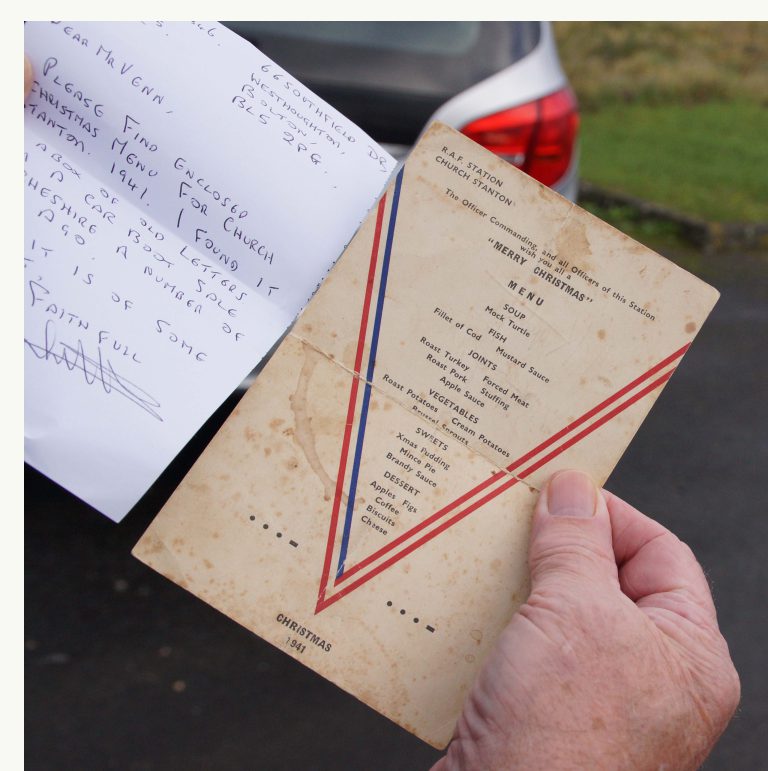 DEAR MR VENN,
66 SOUTHFIELD DR,
WESTHOUGHTON,
BOLTON,
BL5 2PG.
PLEASE FIND ENCLOSED
CHRISTMAS MENU FOR CHURCH
STANTON. 1941. I FOUND IT
A BOX OF OLD LETTERS
A CAR BOOT SALE
CHESHIRE A NUMBER OF
AGO.
IT IS OF SOME
FAITHFULL
R.A.F. STATION
CHURCH STANTON
The Officer Commanding, and all Officers of this Station
wish you all a
"MERRY CHRISTMAS"
MENU
SOUP
Mock Turtle
FISH
Fillet of Cod Mustard Sauce
JOINTS
Roast Turkey Forced Meat
Roast Pork Stuffing
Apple Sauce
VEGETABLES
Roast Potatoes Cream Potatoes
Brussel Sprouts
SWEETS
Xmas Pudding
Mince Pie
Brandy Sauce
DESSERT
Apples Figs
Coffee
Biscuits
Cheese
CHRISTMAS
1941